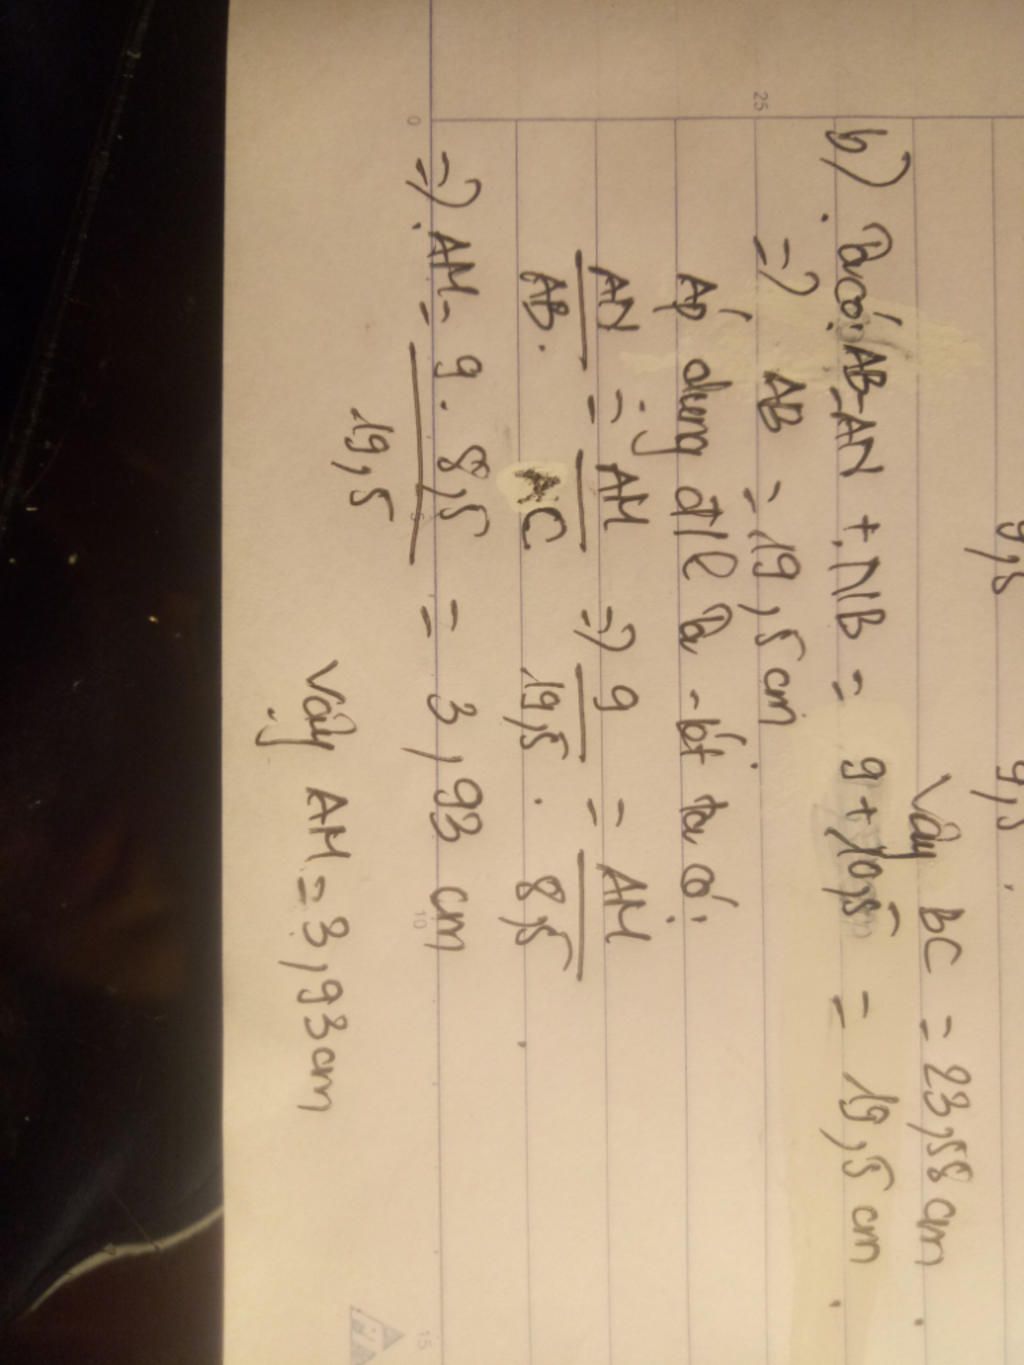 9,5 9,5
Vậy BC = 23,58 cm.
b) Ta có: AB = AN + NB = 9 + 10,5 = 19,5 cm.
=) AB = 19,5 cm
Áp dụng đ/l Ta-lét ta có:
AN/AB = AM/AC =) 9/19,5 = AM/8,5
=) AM = 9.8,5/19,5 = 3,93 cm
Vậy AM = 3,93 cm
0 5 10 15
25